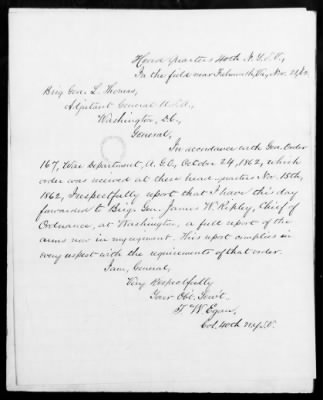 Head quarters 40th N.Y.S.V.,
In the field near Falmouth, Va., Nov. 
Brig Gen. L. Thomas,
Adjutant General U.S.A.,
Washington, D.C.,
General,
In accordance with Gen. Order
167, War Department, A.G.O, October 24, 1862, which
order was received at these head quarters Nov. 18th,
1862, I respectfully report that I have this day
forwarded to Brig. Gen. James W. Ripley, Chief of
Ordnance, at Washington, a full report of the
arms now in my regiment. This report complies in
every respect with the requirements of that order.
I am, General,
Very Respectfully
Your Obt. Servt.,
T. W. Egan,
Col. 40th N.Y.S.V.